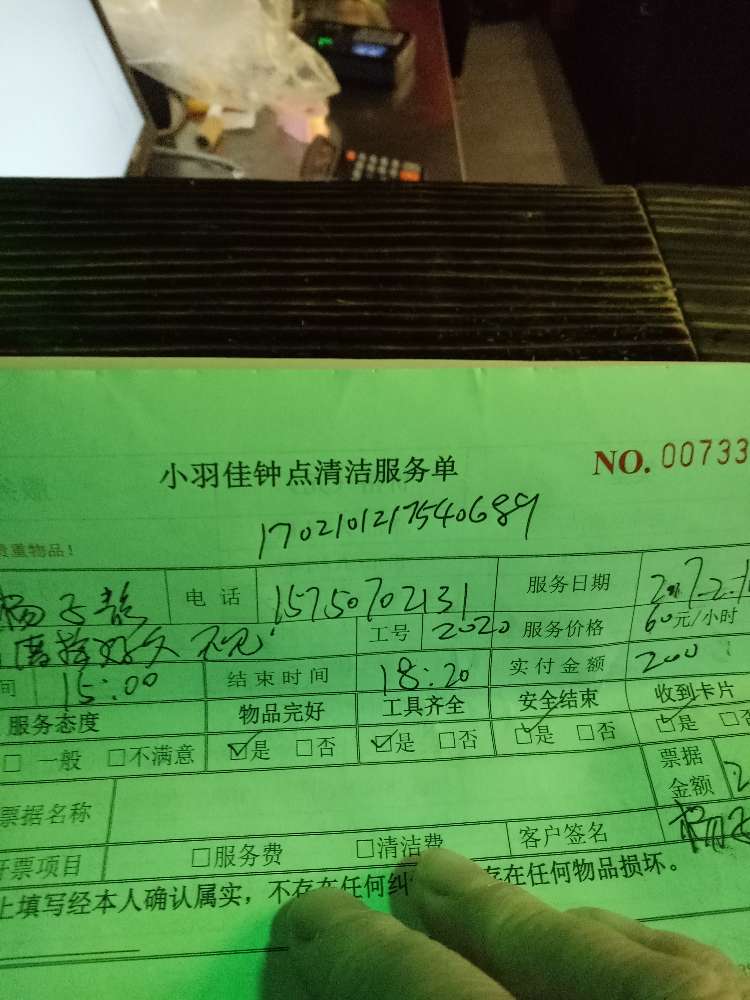 小羽佳钟点清洁服务单 NO. 00733
1702101217540689
贵重物品!
杨子 电 话 15750702131 服务日期
好久不见 工号 2020 服务价格 60元/小时
间 15:00 结束时间 18:20 实付金额 200
服务态度 物品完好 工具齐全 安全结束 收到卡片
□ 一般 □不满意 ☑是 □否 ☑是 □否 ☑是 □否 ☑是 □
票据名称 票据金额 2
开票项目 □服务费 □清洁费 客户签名 杨
上填写经本人确认属实，不存在任何纠 存在任何物品损坏。